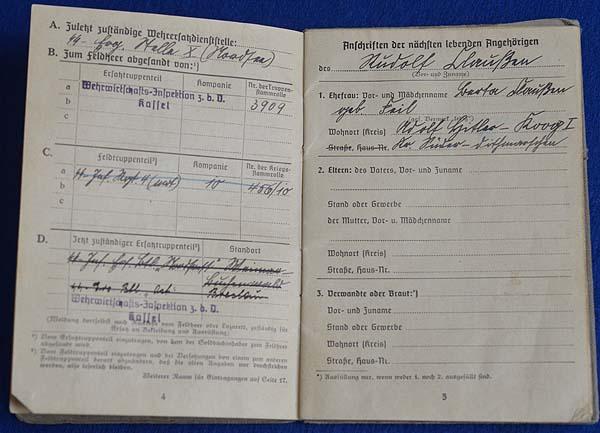 A. Zuletzt zuständige Wehrersatzdienststelle:
Erg. Stelle X (Nordsee)
B. Zum Feldheer abgesandt von:¹)
Ersatztruppenteil Kompanie Nr. der Truppenstammrolle
a Wehrwirtschafts-Inspektion z.b.V.
b Kassel 3909
c
C.
Feldtruppenteil²) Kompanie Nr. der Kriegsstammrolle
a 10 456/10
b
c
D. Jetzt zuständiger Ersatztruppenteil²) Standort
Wehrwirtschafts-Inspektion z.b.V.
Kassel
(Meldung dortselbst nach Rückkehr vom Feldheer oder Lazarett, zuständig für
Ersatz an Bekleidung und Ausrüstung)
¹) Vom Ersatztruppenteil einzutragen, von dem der Soldbuchinhaber zum Feldheer
abgesandt wird.
²) Vom Feldtruppenteil einzutragen und bei Versetzungen von einem zum anderen
Feldtruppenteil derart abzuändern, daß die alten Angaben nur durchstrichen
werden, also leserlich bleiben.
Weiterer Raum für Eintragungen auf Seite 17.
4
Anschriften der nächsten lebenden Angehörigen
des Rudolf Claußen
(Vor- und Zuname)
1. Ehefrau: Vor- und Mädchenname Berta Claußen
geb. Feil
(ggf. Vermerk „ledig")
Wohnort (Kreis) Adolf Hitler-Koog I
Straße, Haus-Nr. Kr. Süder-Dithmarschen
2. Eltern: des Vaters, Vor- und Zuname
Stand oder Gewerbe
der Mutter, Vor- u. Mädchenname
Wohnort (Kreis)
Straße, Haus-Nr.
3. Verwandte oder Braut:*)
Vor- und Zuname
Stand oder Gewerbe
Wohnort (Kreis)
Straße, Haus-Nr.
*) Ausfüllung nur, wenn weder 1. noch 2. ausgefüllt sind.
5